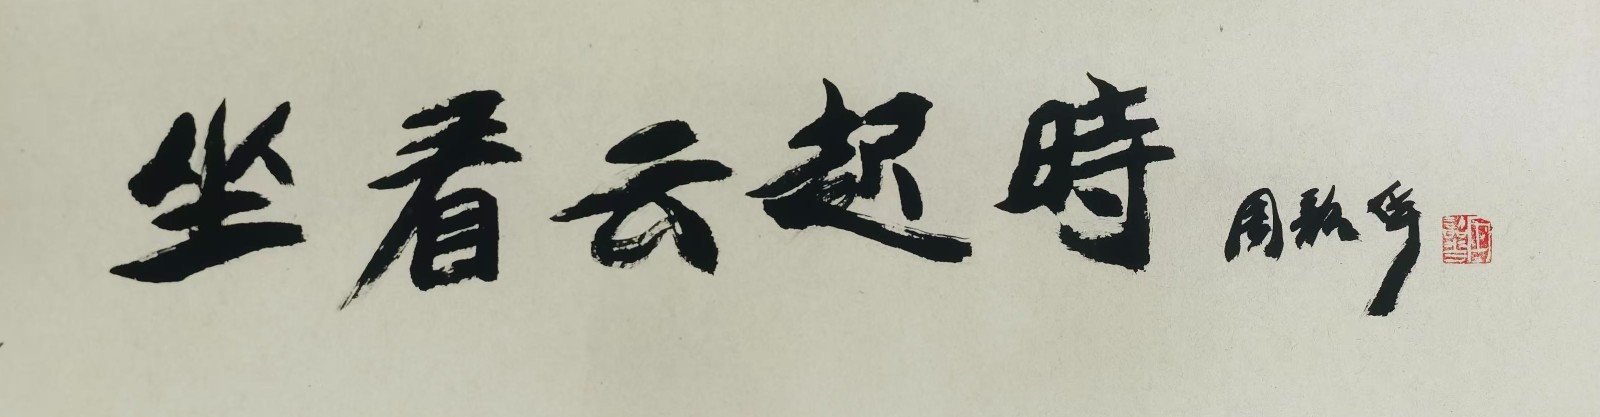 坐看云起時
周